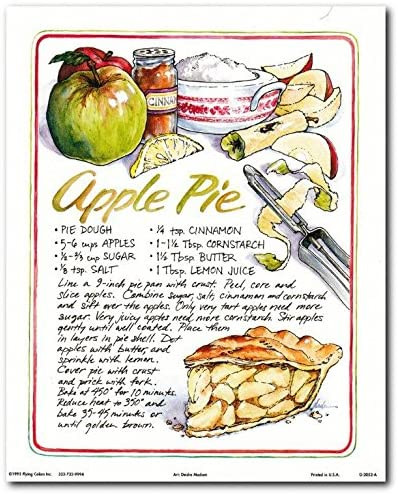 CINNA
Apple Pie
• PIE DOUGH
• 5-6 cups APPLES
• ½-⅔ cup SUGAR
• ⅛ tsp. SALT
• ¼ tsp. CINNAMON
• 1-1½ Tbsp. CORNSTARCH
• 1½ Tbsp. BUTTER
• 1 Tbsp. LEMON JUICE
Line a 9-inch pie pan with crust. Peel, core and
slice apples. Combine sugar, salt, cinnamon and cornstarch
and sift over the apples. Only very tart apples need more
sugar. Very juicy apples need more cornstarch. Stir apples
gently until well coated. Place them
in layers in pie shell. Dot
apples with butter, and
sprinkle with lemon.
Cover pie with crust
and prick with fork.
Bake at 450° for 10 minutes.
Reduce heat to 350° and
bake 35-45 minutes or
until golden brown.
©1995 Flying Colors Inc.
Art: Deidre Madsen
Printed in U.S.A.